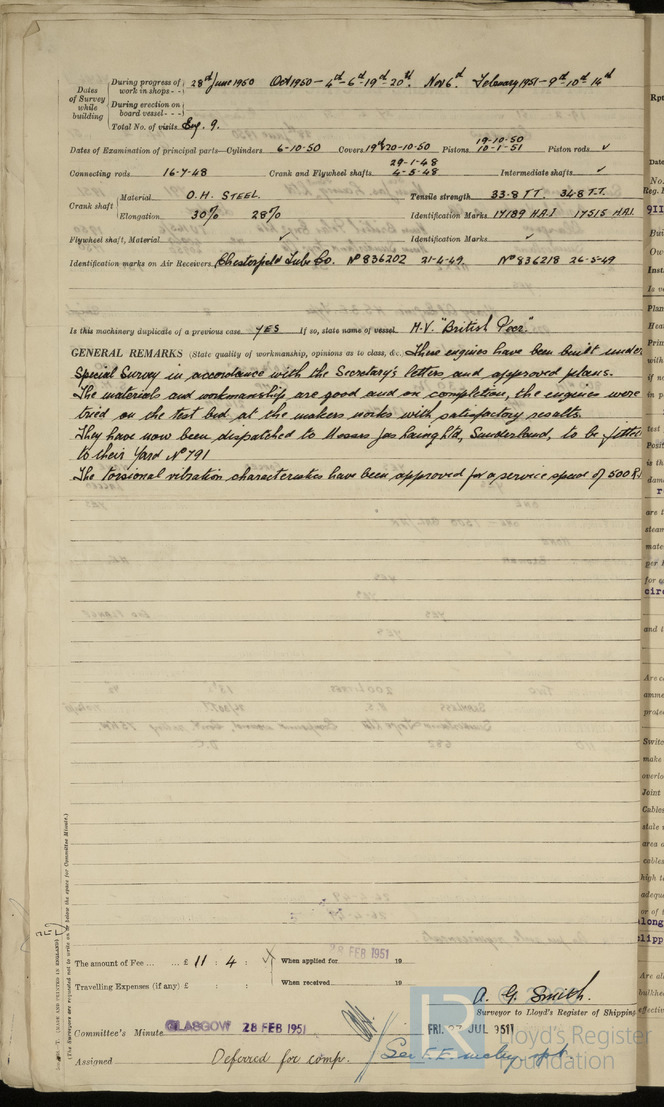 Dates of Survey while building
During progress of work in shops - - 28th June 1950 Oct 1950 - 4th - 6th - 19th - 20th. Nov 6th. February 1951 - 9th - 10th - 14th
During erection on board vessel - - -
Total No. of visits Eng. 9.
Dates of Examination of principal parts—Cylinders 6-10-50 Covers 19th 20-10-50 Pistons 19-10-50 10-1-51 Piston rods ✓
Connecting rods 16-7-48 Crank and Flywheel shafts 29-1-48 4-5-48 Intermediate shafts ✓
Crank shaft Material O.H. STEEL. Tensile strength 33.8 TT. 34.8 T.T.
Elongation 30% 28% Identification Marks 17189 HAI 17515 HAI.
Flywheel shaft, Material ✓ Identification Marks ✓
Identification marks on Air Receivers Chesterfield Tube Co. No 836202 21-4-49. No 836218 26-5-49
Is this machinery duplicate of a previous case YES If so, state name of vessel M.V. "British Peer."
GENERAL REMARKS (State quality of workmanship, opinions as to class, &c. These engines have been built under
Special Survey in accordance with the Secretary's letters and approved plans.
The materials and workmanship are good and on completion, the engines were
tried on the test bed at the makers works with satisfactory results.
They have now been dispatched to Messrs Jas Laing Ltd, Sunderland, to be fitted
to their Yard No 791
The torsional vibration characteristics have been approved for a service speed of 500 R.
The amount of Fee ... ... £ 11 : 4 : When applied for 28 FEB 1951 19
Travelling Expenses (if any) £ : : When received 19
A. G. Smith.
Surveyor to Lloyd's Register of Shipping
Committee's Minute GLASGOW 28 FEB 1951 FRI. 27 JUL 1951
Assigned Deferred for comp. See F.E. mchy rpt.
(The Surveyors are requested not to write on or below the space for Committee Minute.)
(MADE AND PRINTED IN ENGLAND)
LR
Lloyd's Register
Foundation